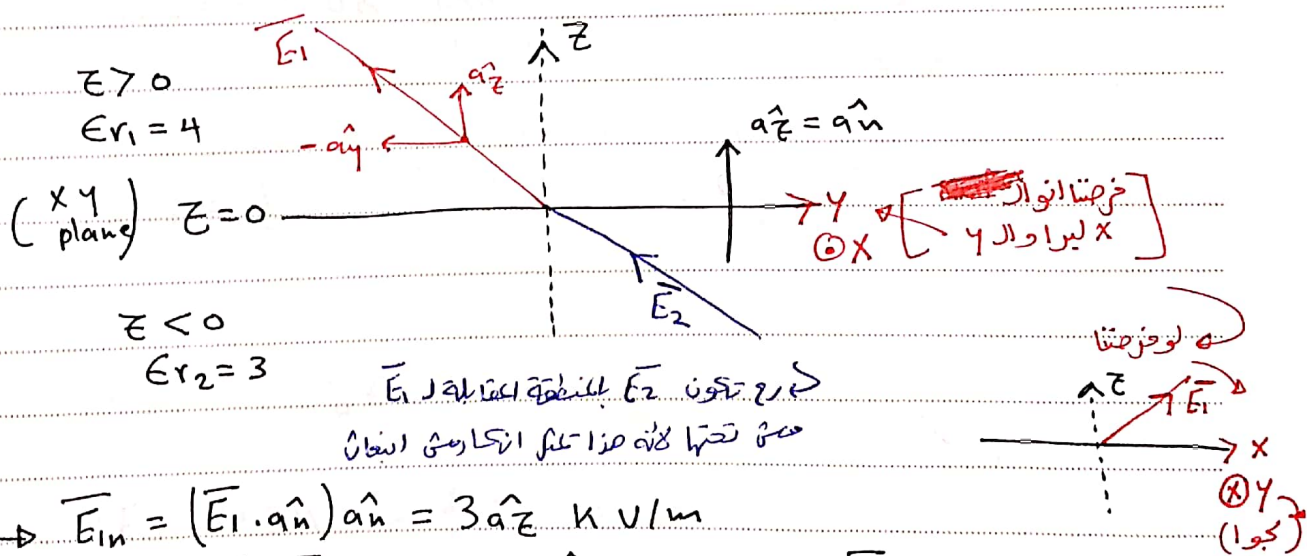 E1
Z
Z > 0
âz
Єr1 = 4
âz = ân
- ây
( XY plane ) Z = 0
Y
X
[ فرضنا انو ال
X لبرا وال Y ]
E2
Z < 0
Єr2 = 3
لو فرضنا
رح تكون E2 بالمنطقة المقابلة لـ E1
مش تحتها لأنه هذا تمثل انكسار مش انبعاث
Z
E1
X
Y
(لجوا)
E1n = (E1 . ân) ân = 3 âz K V/m